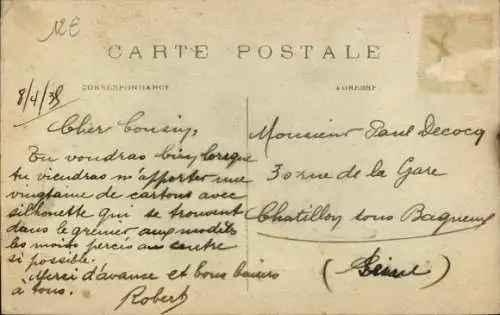 12E
CARTE POSTALE
CORRESPONDANCE
ADRESSE
8/4/35
Cher Cousin,
Tu voudras bien lorsque
tu viendras m'apporter une
vingtaine de cartons avec
silhouette qui se trouvent
dans le grenier aux modèles
les moins percés au centre
si possible.
Merci d'avance et bons baisers
à tous.
Robert
Monsieur Paul Decocq
30 rue de la Gare
Chatillon sous Bagneux
(Seine)